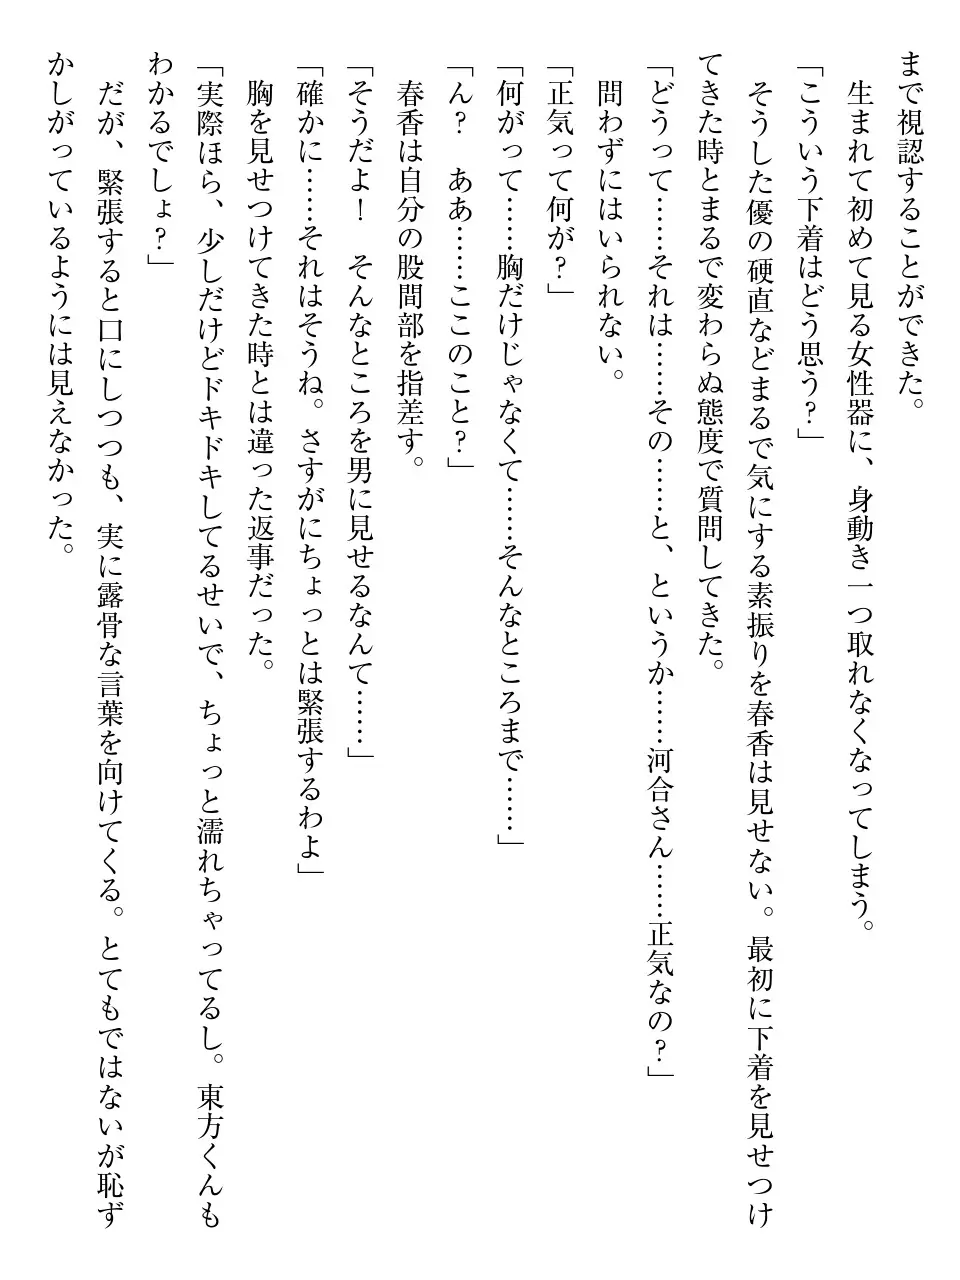 まで視認することができた。
　生まれて初めて見る女性器に、身動き一つ取れなくなってしまう。
「こういう下着はどう思う？」
　そうした優の硬直などまるで気にする素振りを春香は見せない。最初に下着を見せつけ
てきた時とまるで変わらぬ態度で質問してきた。
「どうって……それは……その……と、というか……河合さん……正気なの？」
　問わずにはいられない。
「正気って何が？」
「何がって……胸だけじゃなくて……そんなところまで……」
「ん？　ああ……ここのこと？」
　春香は自分の股間部を指差す。
「そうだよ！　そんなところを男に見せるなんて……」
「確かに……それはそうね。さすがにちょっとは緊張するわよ」
　胸を見せつけてきた時とは違った返事だった。
「実際ほら、少しだけどドキドキしてるせいで、ちょっと濡れちゃってるし。東方くんも
わかるでしょ？」
　だが、緊張すると口にしつつも、実に露骨な言葉を向けてくる。とてもではないが恥ず
かしがっているようには見えなかった。